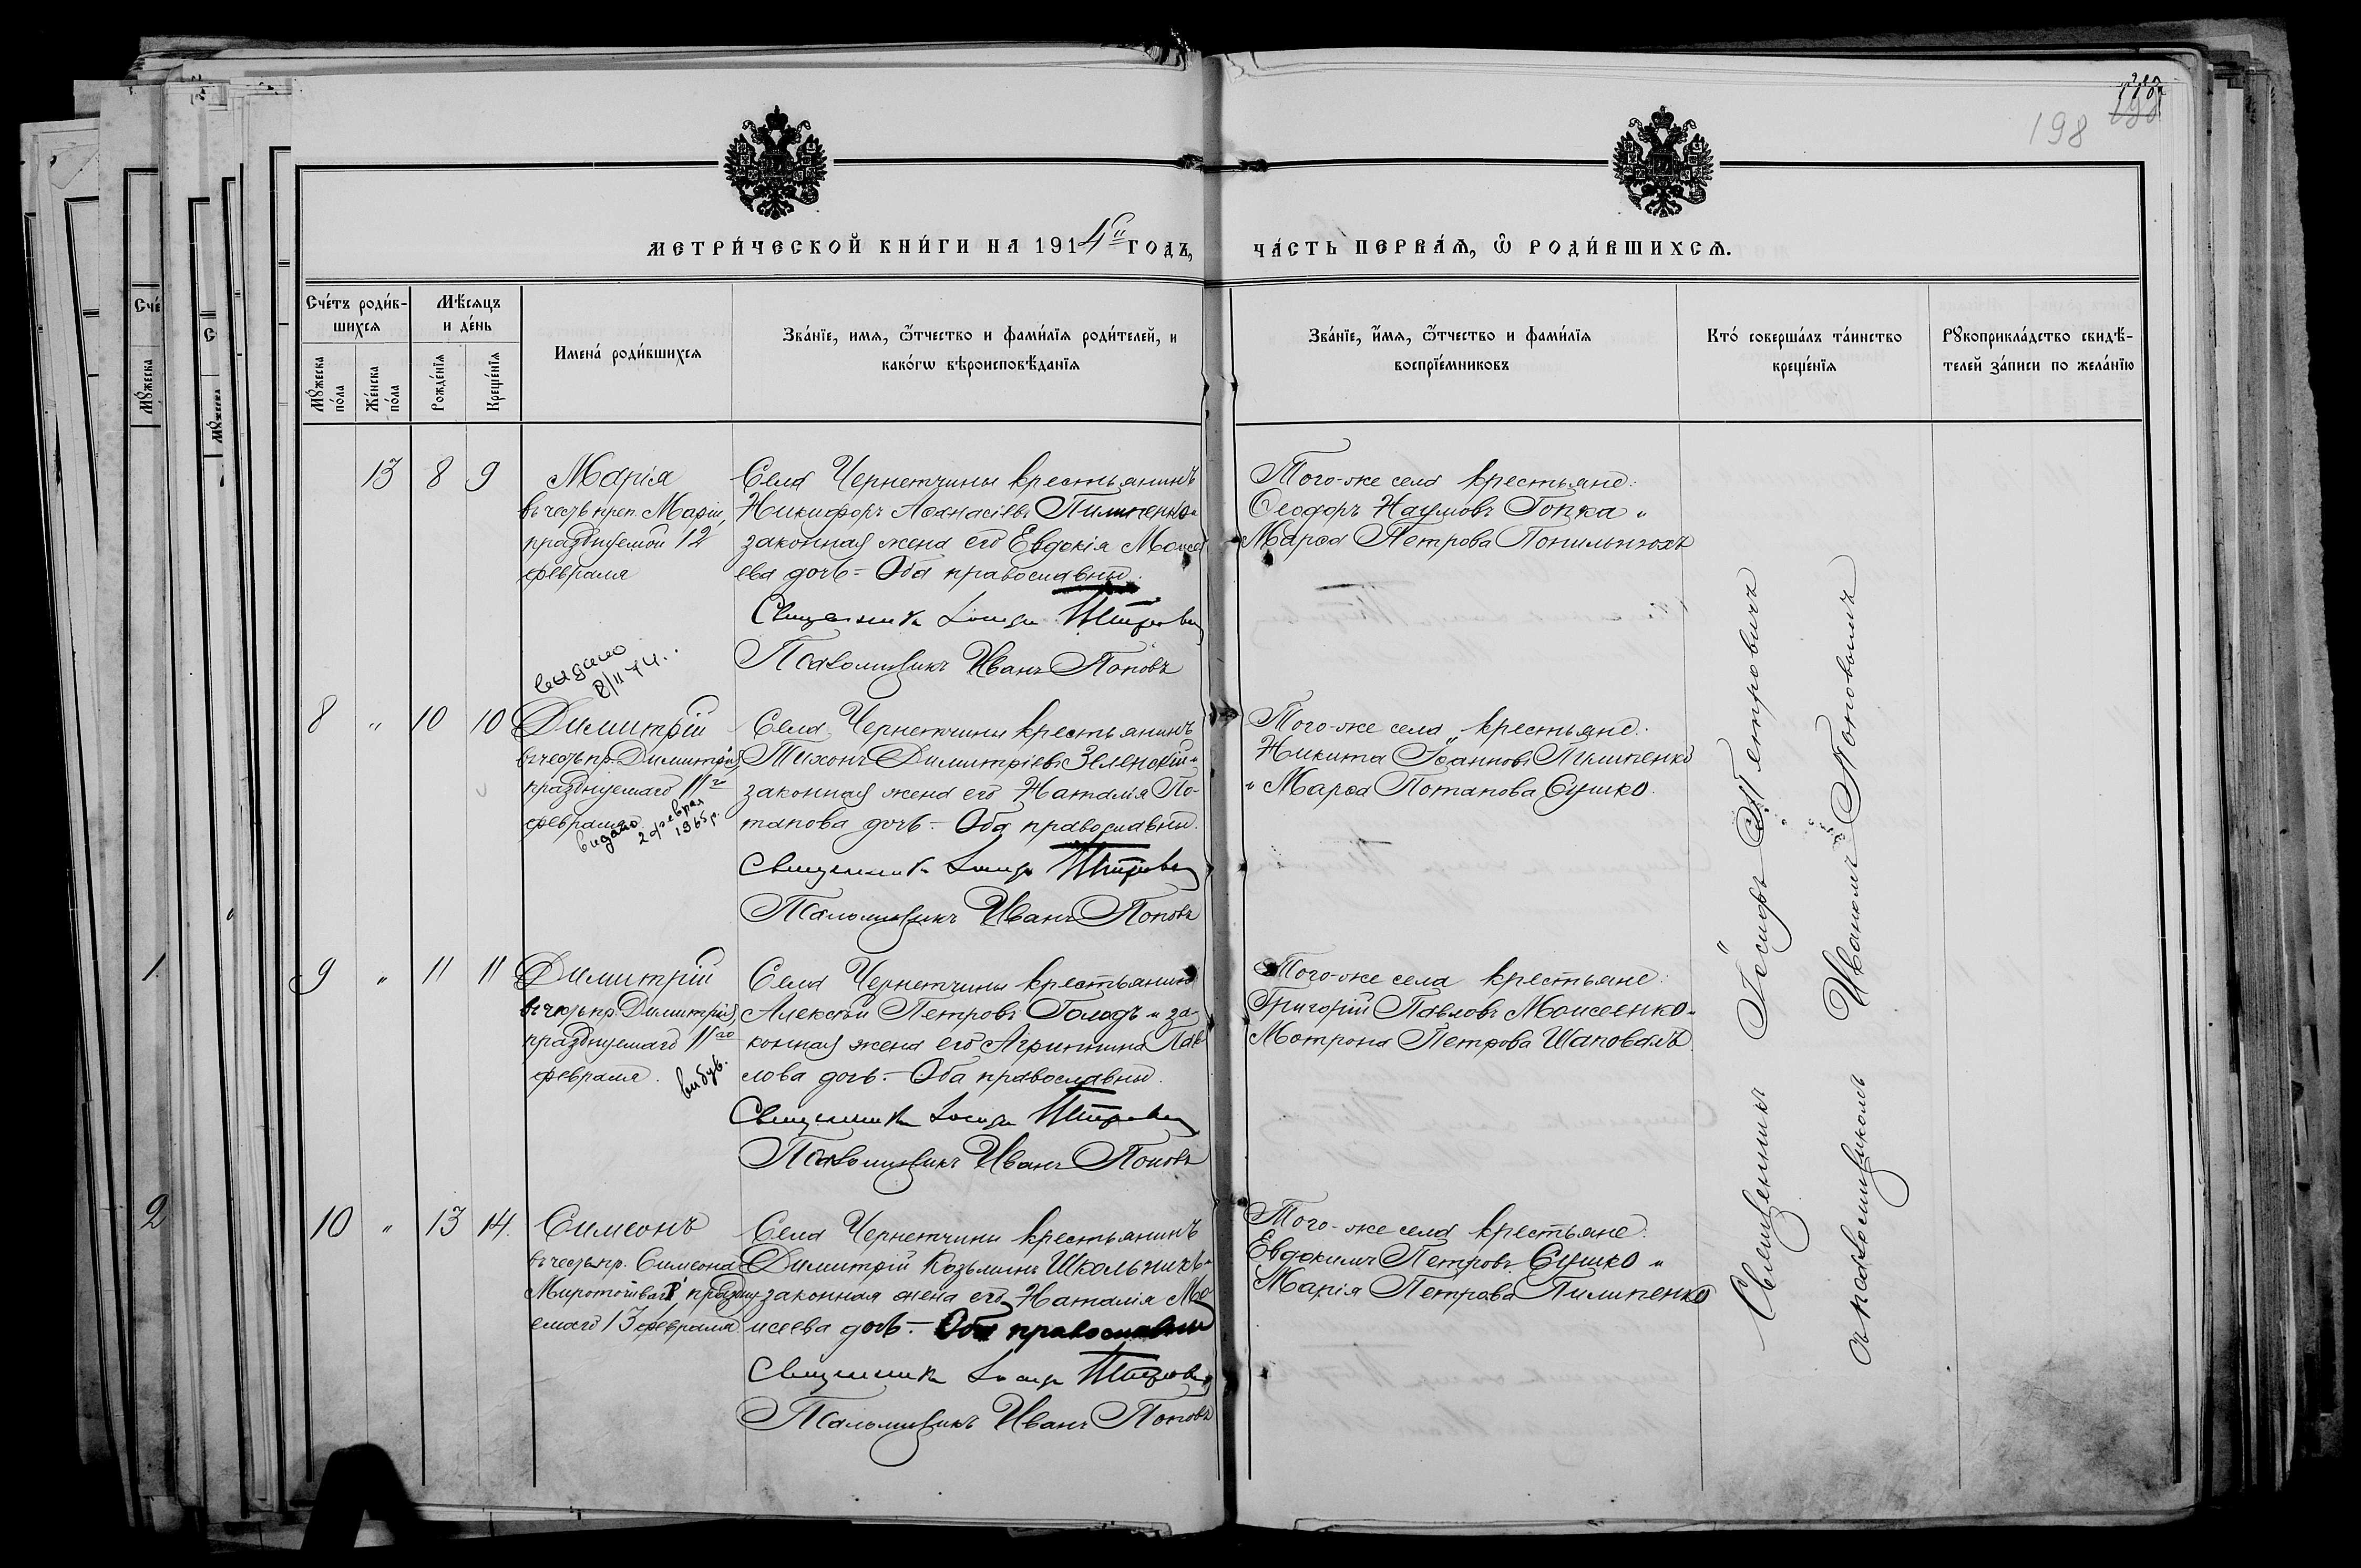 198
МЕТРИ́ЧЕСКОЙ КНИ́ГИ НА 1914й ГОДЪ,
ЧА́СТЬ ПЕРВА́Ѧ, Ѽ РОДИ́ВШИХСѦ.
Сче́тъ роди́в-
шихсѧ
Мѣ́сѧцъ
и де́нь
Мꙋ́жеска
по́ла
Же́нска
по́ла
Рожде́нїѧ
Креще́нїѧ
Имена́ роди́вшихсѧ
Зва́нїе, имѧ, ѻ҆́тчество и фами́лїѧ роди́телей, и
како́гѡ вѣроисповѣ́данїѧ
Зва́нїе, и҆́мѧ, ѻ҆́тчество и фами́лїѧ
воспрїе́мниковъ
Кто́ соверша́лъ та́инство
креще́нїѧ
Рꙋкоприкла́дство свидѣ́-
телей за́писи по жела́нїю
13 8 9
Марія
въ честь преп. Маріи,
празднуемой 12
февраля
Села Чернетчины крестьянинъ
Никифоръ Аѳанасіевъ Пилипенко и
законная жена его Евдокія Моисе
ева дочь - Оба православны.
Священникъ Іосифъ Петровичъ
Псаломщикъ Иванъ Поповъ
Того-же села крестьяне:
Ѳеодоръ Наумовъ Гопка и
Марѳа Петрова
выдано
8/II 74.
8 " 10 10
Димитрій
въ честь пр. Димитрія,
празднуемаго 11го
февраля
видано 2 февраля
1965 р.
Села Чернетчины крестьянинъ
Тихонъ Димитріевъ Зеленскій и
законная жена его Наталія По-
тапова дочь. - Оба православны.
Священникъ Іосифъ Петровичъ
Псаломщикъ Иванъ Поповъ
Того-же села крестьяне:
Никита Іоанновъ Пилипенко
и Марѳа Потапова Сушко.
9 " 11 11
Димитрій
въ честь пр. Димитрія,
празднуемаго 11го
февраля.
вибув.
Села Чернетчины крестьянинъ
Алексѣй Петровъ Голодъ и за-
конная жена его Агриппина Пав
лова дочь. - Оба православны.
Священникъ Іосифъ Петровичъ
Псаломщикъ Иванъ Поповъ
Того-же села крестьяне:
Григорій Павловъ Моисеенко и
Мотрона Петрова Шаповалъ
10 " 13 14.
Симеонъ
въ честь пр. Симеона
Мироточиваго, праздну
емаго 13 февраля
Села Чернетчины крестьянинъ
Димитрій Козьминъ Школьникъ и
законная жена его Наталія Мо
исеева дочь. - Оба православны
Священникъ Іосифъ Петровичъ
Псаломщикъ Иванъ Поповъ
Того-же села крестьяне:
Евдокимъ Петровъ Сушко и
Марія Петрова Пилипенко
Священникъ Іосифъ Петровичъ
съ псаломщикомъ Иваномъ Поповымъ
1.
2